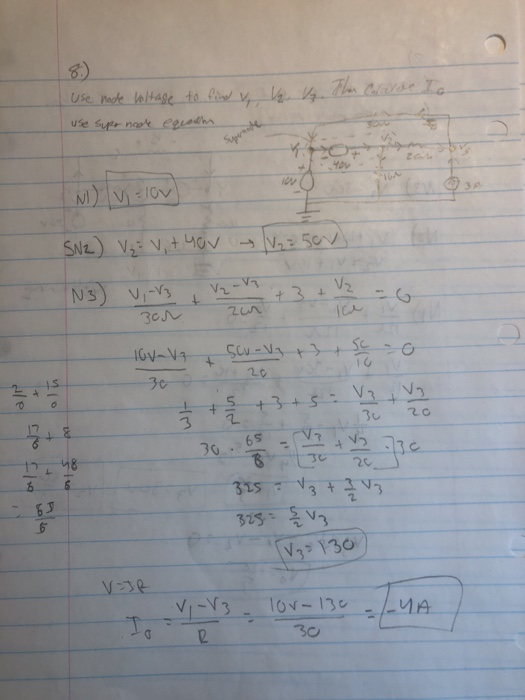 8.)
Use node voltage to find V₁, V₂, V₃. Then I₀
use super node equation
supernode
30Ω I₀
V₁ 40V V₂ 20Ω V₃
10V 10Ω 3A
N1) V₁ = 10V
SN2) V₂ = V₁ + 40V → V₂ = 50V
N3) (V₁-V₃)/30Ω + (V₂-V₃)/20Ω + 3 + V₂/10Ω = 0
(10V-V₃)/30 + (50V-V₃)/20 + 3 + 50/10 = 0
2/6 + 15/6
1/3 + 5/2 + 3 + 5 = V₃/30 + V₃/20
17/6 + 8
30 · 65/6 = [V₃/30 + V₃/20 ·] 30
17/6 + 48/6
325 = V₃ + 3/2 V₃
= 65/6
325 = 5/2 V₃
V₃ = 130
V=IR
I₀ = (V₁-V₃)/R = (10V-130)/30 = -4A